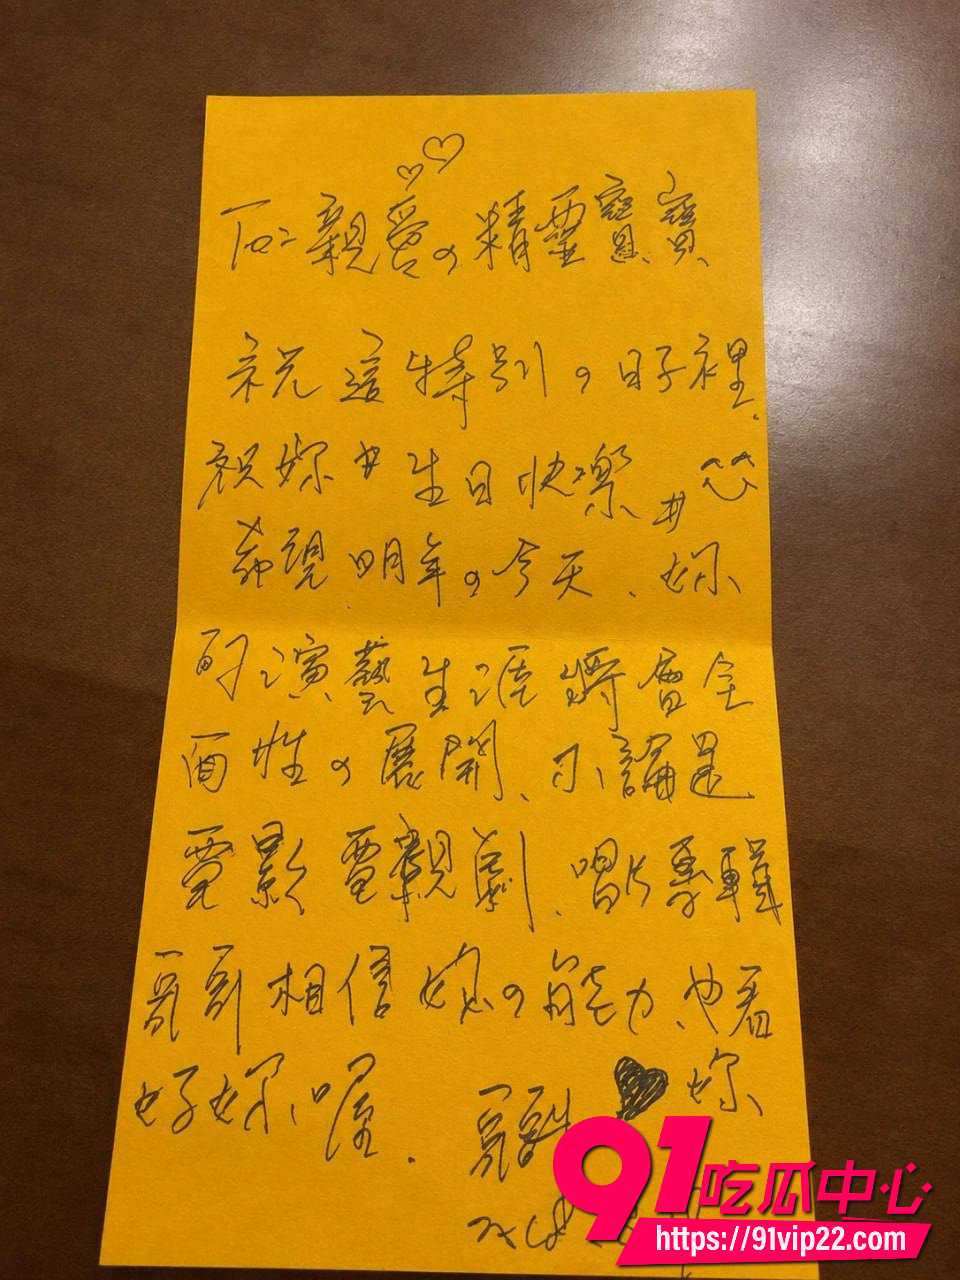 To: 親愛の精靈寶寶
祝這特別の日子裡.
祝妳#生日快樂#
希望明年の今天、妳
的演藝生涯將會全
面性の展開、不論是
電影、電視劇、唱片專輯
哥哥相信妳の能力、也看
好妳、喔.
哥哥 妳
91吃瓜中心
https://91vip22.com